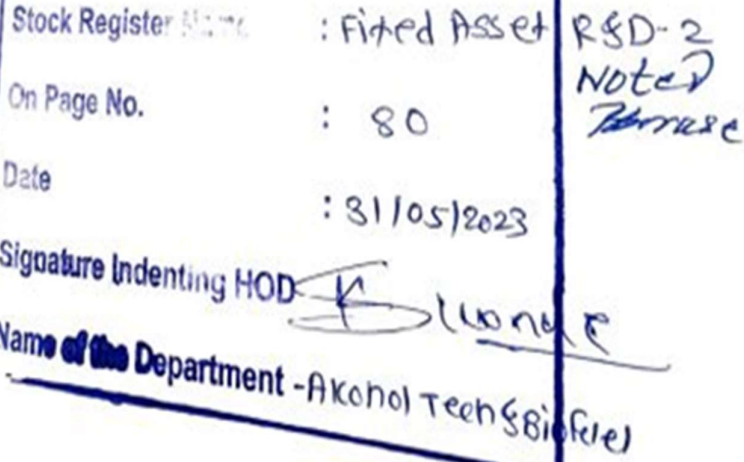 Stock Register Name : Fixed Asset R&D-2
Noted
On Page No. : 80
Date : 31/05/2023
Signature Indenting HOD
Name of the Department - Alcohol Tech & Biofuel